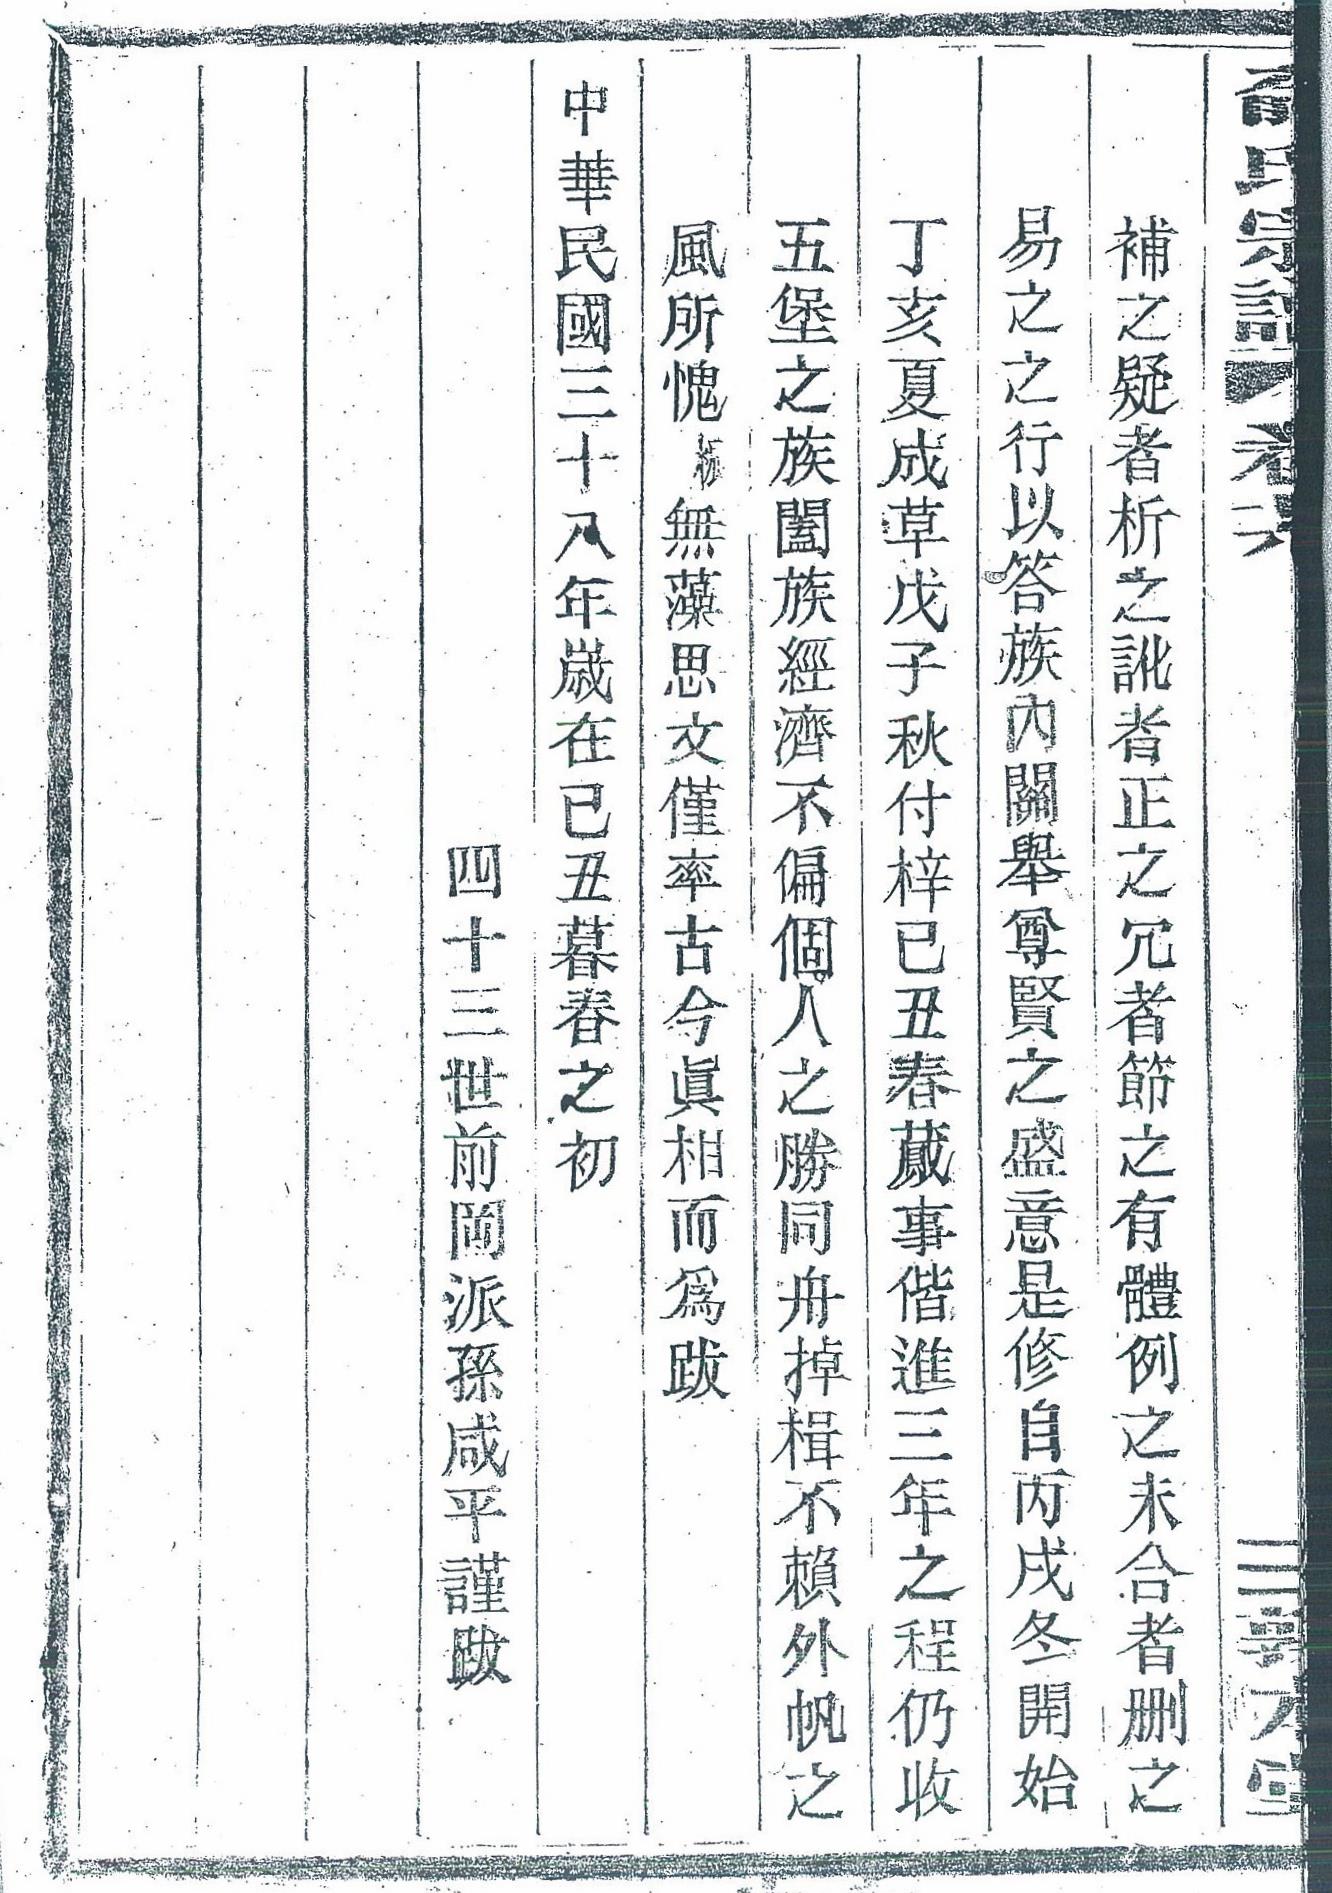 氏宗譜 卷六
補之疑者析之訛者正之冗者節之有體例之未合者删之
易之之行以答族內關舉尊賢之盛意是修自丙戌冬開始
丁亥夏成草戊子秋付梓已丑春蕆事偕進三年之程仍收
五堡之族闔族經濟不偏個人之勝同舟掉楫不賴外帆之
風所愧無藻思文僅率古今眞相而爲跋
中華民國三十八年歲在已丑暮春之初
四十三世前岡派孫咸平謹跋
三 堂